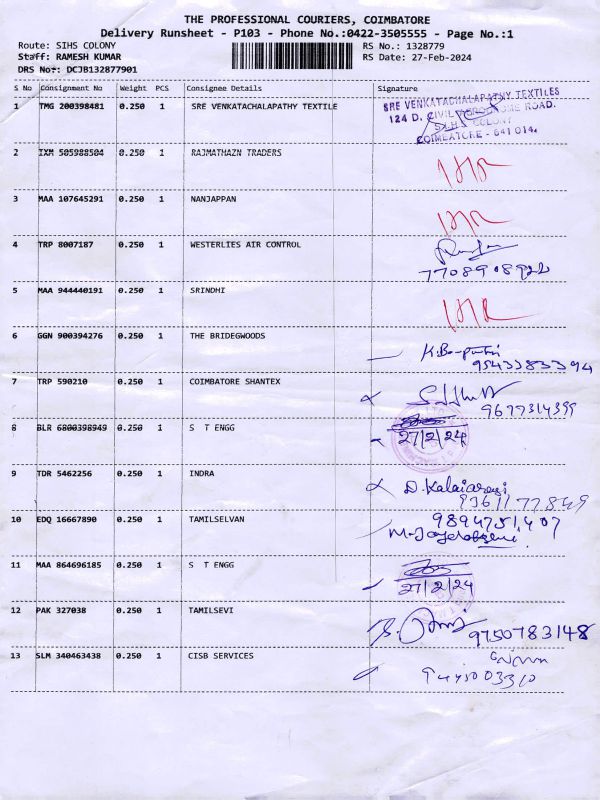 THE PROFESSIONAL COURIERS, COIMBATORE
Delivery Runsheet - P103 - Phone No.:0422-3505555 - Page No.:1
Route: SIHS COLONY RS No.: 1328779
Staff: RAMESH KUMAR RS Date: 27-Feb-2024
DRS No: DCJB132877901
S No Consignment No Weight PCS Consignee Details Signature
1 TMG 200398481 0.250 1 SRE VENKATACHALAPATHY TEXTILE
SRE VENKATACHALAPATHY TEXTILES
124 D, CIVIL AERODROME ROAD.
COLONY
COIMBATORE - 641 014.
2 IXM 505988504 0.250 1 RAJMATHAZN TRADERS
3 MAA 107645291 0.250 1 NANJAPPAN
4 TRP 8007187 0.250 1 WESTERLIES AIR CONTROL
5 MAA 944440191 0.250 1 SRINDHI
6 GGN 900394276 0.250 1 THE BRIDEGWOODS
9543383394
7 TRP 590210 0.250 1 COIMBATORE SHANTEX
9677314399
8 BLR 6800398949 0.250 1 S T ENGG
27/2/24
9 TDR 5462256 0.250 1 INDRA
D. Kalaiarasi
9361177849
10 EDQ 16667890 0.250 1 TAMILSELVAN
9894751407
11 MAA 864696185 0.250 1 S T ENGG
27/2/24
12 PAK 327038 0.250 1 TAMILSEVI
9750783148
13 SLM 340463438 0.250 1 CISB SERVICES
9445003310